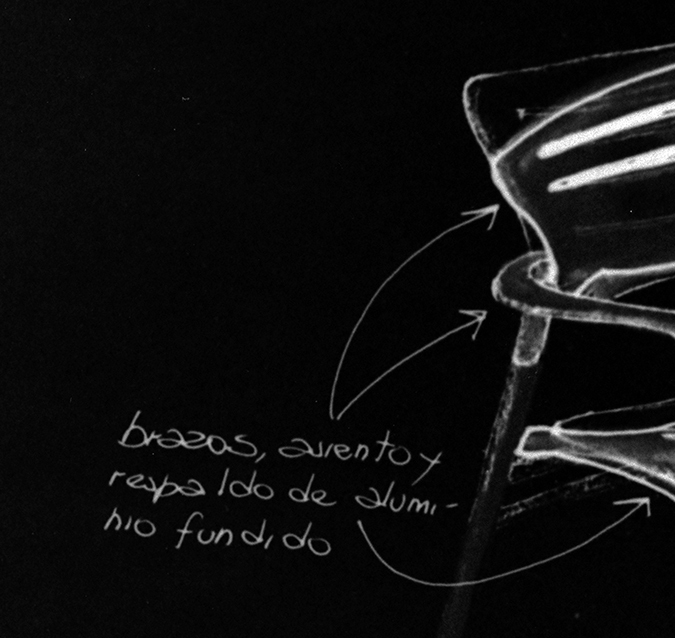 brazos, asiento y
respaldo de alumi-
nio fundido